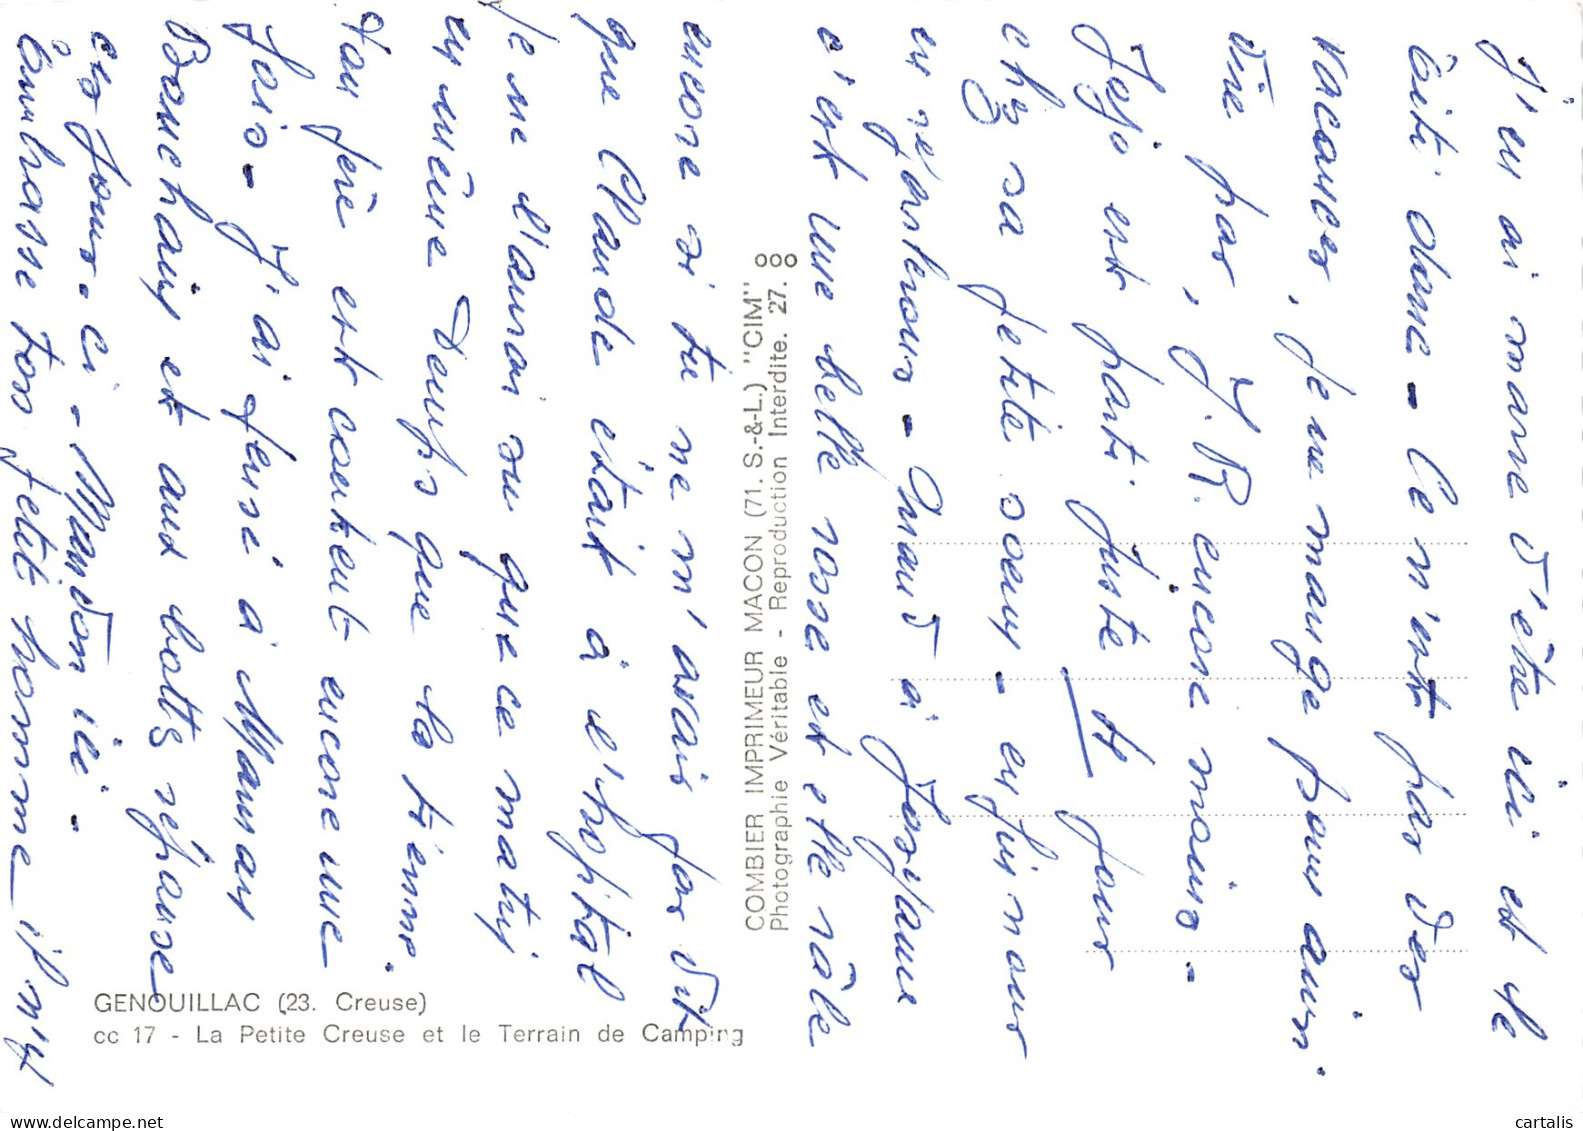 J'en ai marre d'être ici et le
bâti dame - Ce n'est pas des
vacances, je ne mange pour ainsi
dire pas, J.R. encore moins -
Jojo est parti juste 4 jour
chez sa petite soeur - en fin nous
en reparlerons - Maud à Josyane
c'est une belle rosse et elle râle
encore si tu ne m'avais pas dit
que Claude était à l'hopital
Je ne l'aurai su que ce matin
en même temps que la tienne.
Ton père est content encore une
fois - J'ai pensé à Maman
Bouchain et aux bottes réponse
ces jours-ci - Mandon ici -
embrasse ton petit homme il n'y
COMBIER IMPRIMEUR MACON (71. S.-&-L.) "CIM"
Photographie Véritable - Reproduction Interdite. 27.
GENOUILLAC (23. Creuse)
cc 17 - La Petite Creuse et le Terrain de Camping
delcampe.net
cartalis